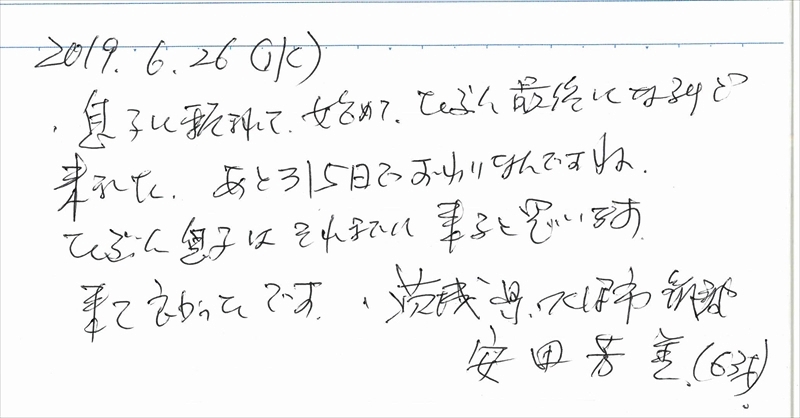 2019.6.26(水)
・息子に頼まれて、始めて、たぶん最後になるけど
来れた。あと3/5日でおわりなんですね。
たぶん息子はそれまでに来ると思います。
来て良かったです。・茨城県、つくば市
安田芳(63才)。